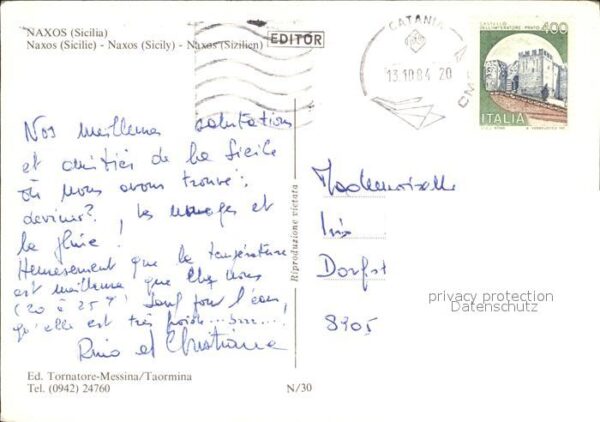 NAXOS (Sicilia)
Naxos (Sicilie) - Naxos (Sicily) - Naxos (Sizilien)
EDITOR
CATANIA
13.10.84 20
CASTELLO
DELL'IMPERATORE - PRATO
400
ITALIA
Nos meilleures salutations
et amitiés de la Sicile
où nous avons trouvé:
devinez?, les nuages et
la pluie!
Heureusement que la température
est meilleure que chez nous
(20 à 25°) Sauf pour l'eau,
qu'elle est très froide...brrr....,
Rino et Christiane
Mademoiselle
Iris
Dorfstr
8905
Riproduzione vietata
privacy protection
Datenschutz
Ed. Tornatore-Messina/Taormina
Tel. (0942) 24760
N/30